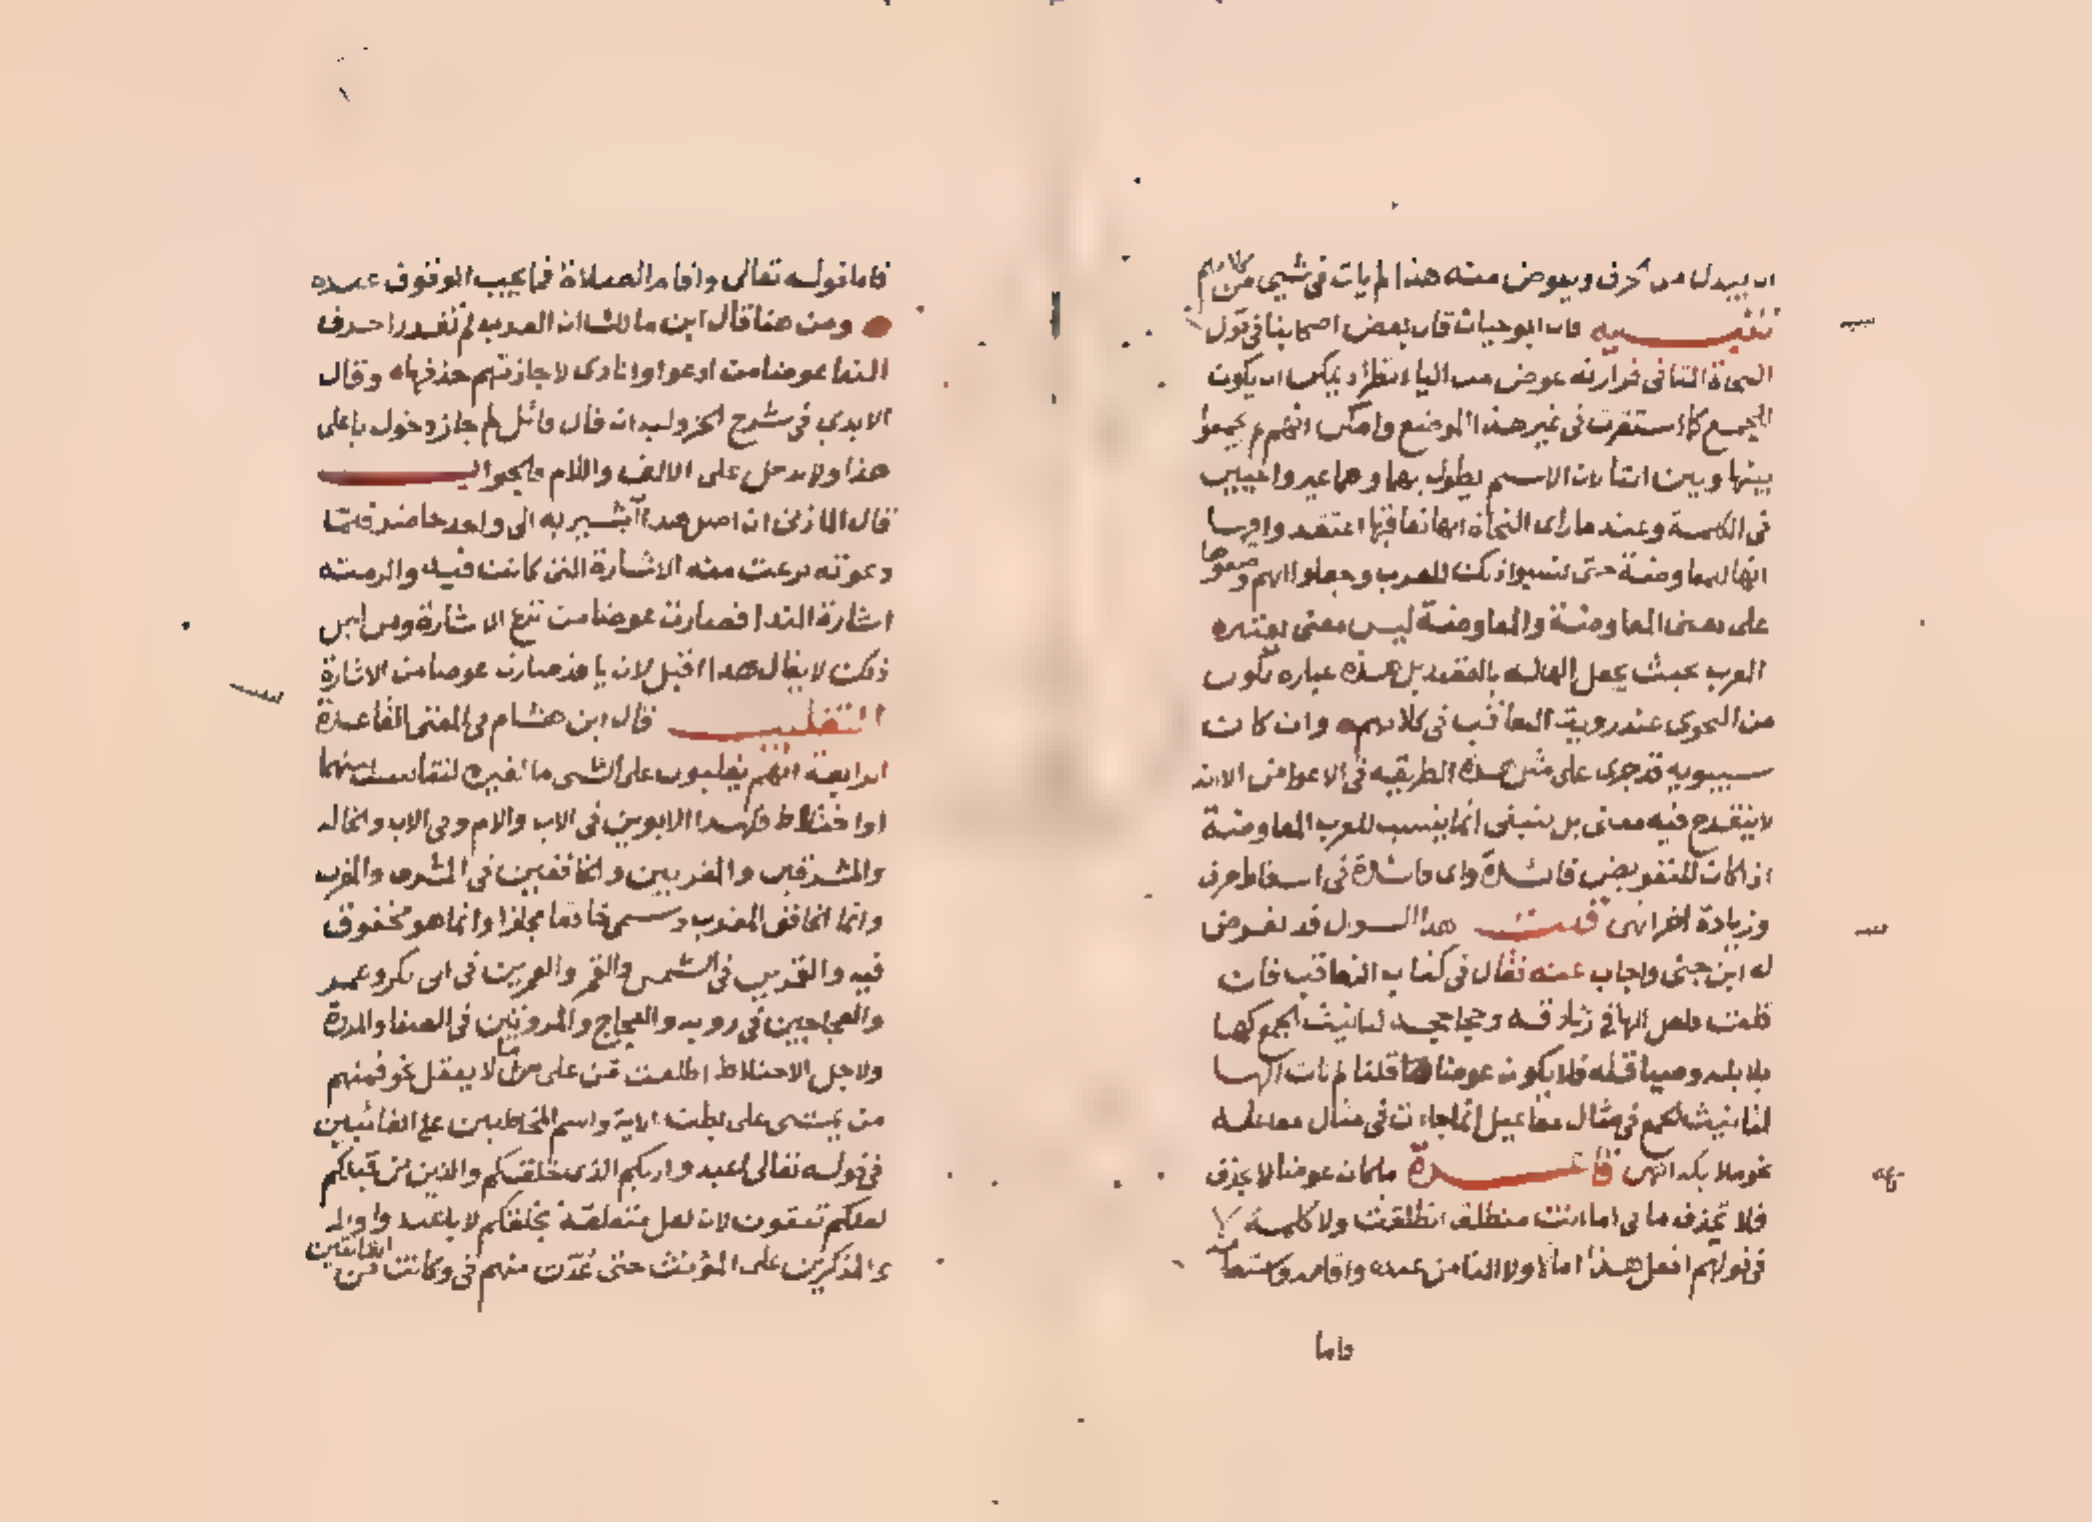 ان يبدل من حرف ويعوض منه هذا لم يات في شيء من كلامهم
تنبيه قال ابو حيان قال بعض اصحابنا في قول
النحاة التا في فرازنة عوض من اليا نظر اذ يمكن ان يكون
الجمع كما استقرت في غير هذا الموضع وامكن انهم لم يجمعوا
بينها وبين اليا لان الاسم يطول بها وهما غير واجبين
في الكلمة وعند ما راى النحاة انها تعاقبها اعتقدوا فيها
انها للمعاوضة حتى نسبوا ذلك للعرب وجعلوا انهم وضعوها
على معنى المعاوضة والمعاوضة ليس معنى يعتبره
العرب بحيث يجعل الها له بالقصد بل هذه عبارة تكون
من النحوي عند روية التعاقب في كلامهم وان كان
سيبويه قد جرى على مثل هذه الطريقة في الاعواض الا انه
لا ينقدح فيه معنى بل ينبغي انما ينسب للعرب المعاوضة
اذا كان للتعويض فائدة واى فائدة في اسقاط حرف
وزيادة اخر انتهى قلت هذا السول قد تعرض
له ابن جني واجاب عنه فقال في كتاب التعاقب فان
قلت فلعل الها في زنادقة وجحاجحة لتانيث الجمع كهـا
ملائكة وصياقلة فلا يكون عوضا قلنا لم تات الهـا
لتانيث الجمع في مثال مفاعيل انما جاءت في مثال مفاعلـه
نحو ملائكة انتهى قاعدة ما كان عوضا لا يحذف
فلا تحذف ما في اما انت منطلقا انطلقت ولا كلمة لا
في قولهم افعل هذا اما لا ولا التا من عدة واقامة واستقامة
فاما
فاما قوله تعالى واقام الصلاة فما يجب الوقوف عنده
ومن هنا قال ابن مالك ان العرب لم تقدر احرف
الندا عوضا من ادعوا وانادى لاجازتهم حذفها وقال
الابدي في شرح الجزولية ان قال قائل لم جاز دخول يا على
هذا ولا تدخل على الالف واللام فالجواب
قال المازني ان اصل هذا ان تشير به الى واحد حاضر فلما
دعوته نزعت منه الاشارة التي كانت فيه والزمته
اشارة الندا فصارت يا عوضا من نزع الاشارة ومن اجل
ذلك لا يقال هذا اقبل لان يا قد صارت عوضا من الاشارة
التغليب قال ابن هشام في المغني القاعدة
الرابعة انهم يغلبون على الشي ما لغيره لتناسب بينهما
او اختلاط فلهذا الابوين في الاب والام وفي الاب والخالة
والمشرقين والمغربين والخافقين في المشرق والمغرب
وانما الخافق المغرب وسمي خافقا مجازا وانما هو مخفوق
فيه والقمرين في الشمس والقمر والعمرين في ابى بكر وعمـر
والعجاجين في روبة والعجاج والمروتين في الصفا والمروة
ولاجل الاختلاط اطلقت من على ما لا يعقل نحو فمنهم
من يمشى على بطنه الاية واسم المخاطبين على الغائبين
في قوله تعالى اعبدوا ربكم الذي خلقكم والذين من قبلكم
لعلكم تتقون لان لعل متعلقة بخلقكم لا باعبدوا والـ
والمذكرين على المؤنث حتى عدت منهم في وكانت من القانتين